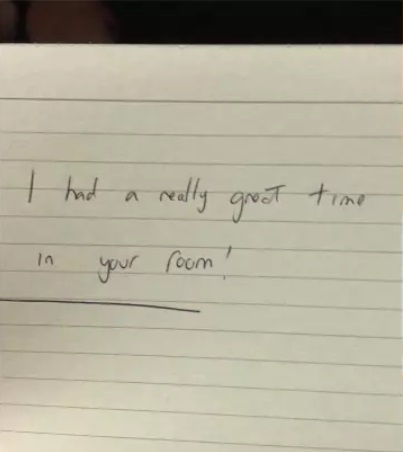 I had a really great time
in your room!